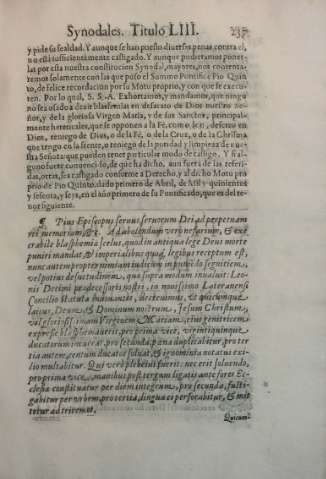 Synodales. Titulo LIII. 237
y pide la fealdad. Y aunque se han puesto diuersas penas contra el,
no està suficientemente castigado. Y aunque pudieramos poner-
las por esta nuestra constitucion Synodal, mayores, nos contenta-
remos solamente con las que puso el Summo Pontifice Pio Quin
to, de felice recordacion por su Motu proprio, y con que se execu-
ten. Por lo qual, S. S. A. Exhortamos, y mandamos, que ningu
no sea osado a dezir blasfemias en desacato de Dios nuestro se-
ñor, y de la gloriosa Virgen Maria, y de sus Sanctos, principal-
mente hereticales, que se opponen a la Fè, como es, descreo en
Dios, reniego de Dios, o de la Fè, o de la Cruz, o de la Chrisma
que traygo en la frente, o reniego de la puridad y limpieza de nue-
stra Señora: que pueden tener particular modo de castigo. Y si al-
guno fuere conuencido, de que ha dicho, aun fuera de las referi-
das, otras, sea castigado conforme a Derecho, y al dicho Motu pro
prio de Pio Quinto, dado primero de Abril, de Mil y quinientos
y sesenta, y seys, en el año primero de su Pontificado, que es del te
nor siguiente.
¶ Pius Episcopus seruus seruorum Dei ad perpetuam
rei memoriam, &c. Ad abolendum vero nefarium, & exe-
crabile blasphemiæ scelus, quod in antiqua lege Deus morte
puniri mandat & imperialibus quoq, legibus receptum est,
nunc autem propter nimiam iudicum in puniendo segnitiem,
vel potius desuetudinem, quæ supra modum inualuit: Leo-
nis Decimi prædecessoris nostri, in nouissimo Lateranensi
Concilio statuta innouantes, decernimus, vt quicunque
laicus, Deum, & Dominum nostrum, Iesum Christum,
vel gloriosam Virginem Mariam, eius genitricem
expresse blasphemauerit, pro prima vice, viginti quinque
ducatorum incurrat, pro secunda pœna duplicabitur, pro ter
tia autem, centum ducatos soluat, & ignominia notatus exi-
lio mulctabitur. Qui verò plebeius fuerit, nec erit soluendo,
pro prima vice, manibus post tergum ligatis ante fores Ec-
clesiæ constituatur per diem integrum, pro secunda, fusti-
gabitur per vrbem, pro tertia, lingua ei perforabitur, & mit
tetur ad triremes.
Quicun-